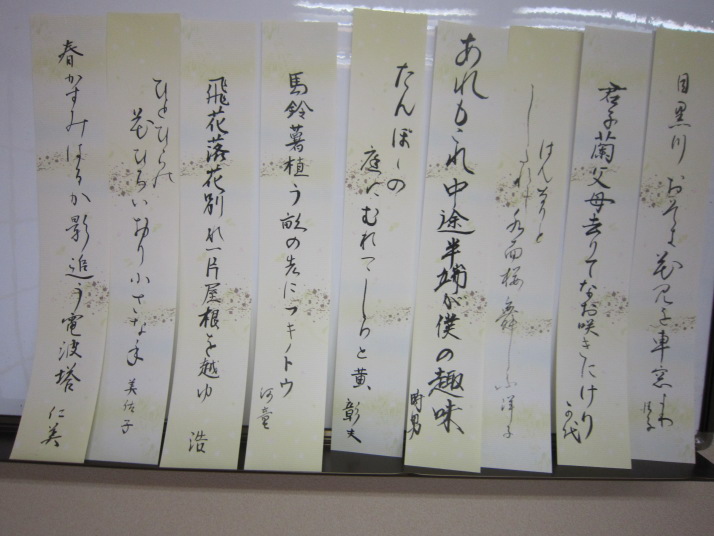 目黒川おそき花見を車窓より
君子蘭父母去りてなお咲きにけり
はんなりと
しだれ
雨桜舞
洋子
あれもこれ中途半端が僕の趣味
時男
たんぽゝの
庭にむれてしらと黄
彰夫
馬鈴薯植う畝の先にフキノトウ
河童
飛花落花別れ一片屋根を越ゆ
浩
ひとひらの
花ひろいおり小さな手
美佐子
春かすみはるか影追う電波塔
仁美